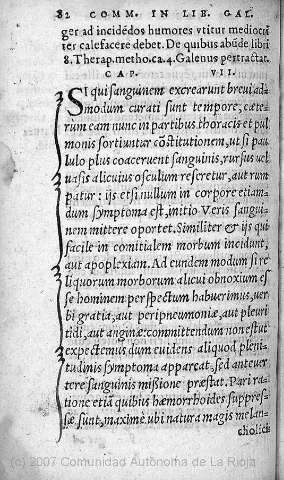 82 COMM. IN LIB. GAL.
ger ad incidēdos humores vtitur mediocri
ter calefacere debet. De quibus abūde libri
8. Therap. metho. ca. 4. Galenus pertractat.
CAP. VII.
SI qui sanguinem excrearunt breui ad-
modum curati sunt tempore, cæte-
rum eam nunc in partibus thoracis et pul
monis sortiuntur cōstitutionem, ut si pau
lulo plus coaceruent sanguinis, rursus uel
uasis alicuius osculum reseretur, aut rum
patur: ijs etsi nullum in corpore etiam-
dum symptoma est, initio Veris sangui-
nem mittere oportet. Similiter & ijs qui
facile in comitialem morbum incidunt,
aut apoplexiam. Ad eundem modum si re
liquorum morborum alicui obnoxium es
se hominem perspectum habuerimus, uer
bi gratia, aut peripneumoniæ, aut pleuri
tidi, aut anginæ: committendum non est ut
expectemus dum euidens aliquod pleni-
tudinis symptoma appareat, sed anteuer
tere sanguinis missione præstat. Pari ra-
tione etiā quibus hæmorrhoides suppres-
sæ sunt, maxime ubi natura magis melan-
cholici
(c) 2007 Comunidad Autónoma de La Rioja